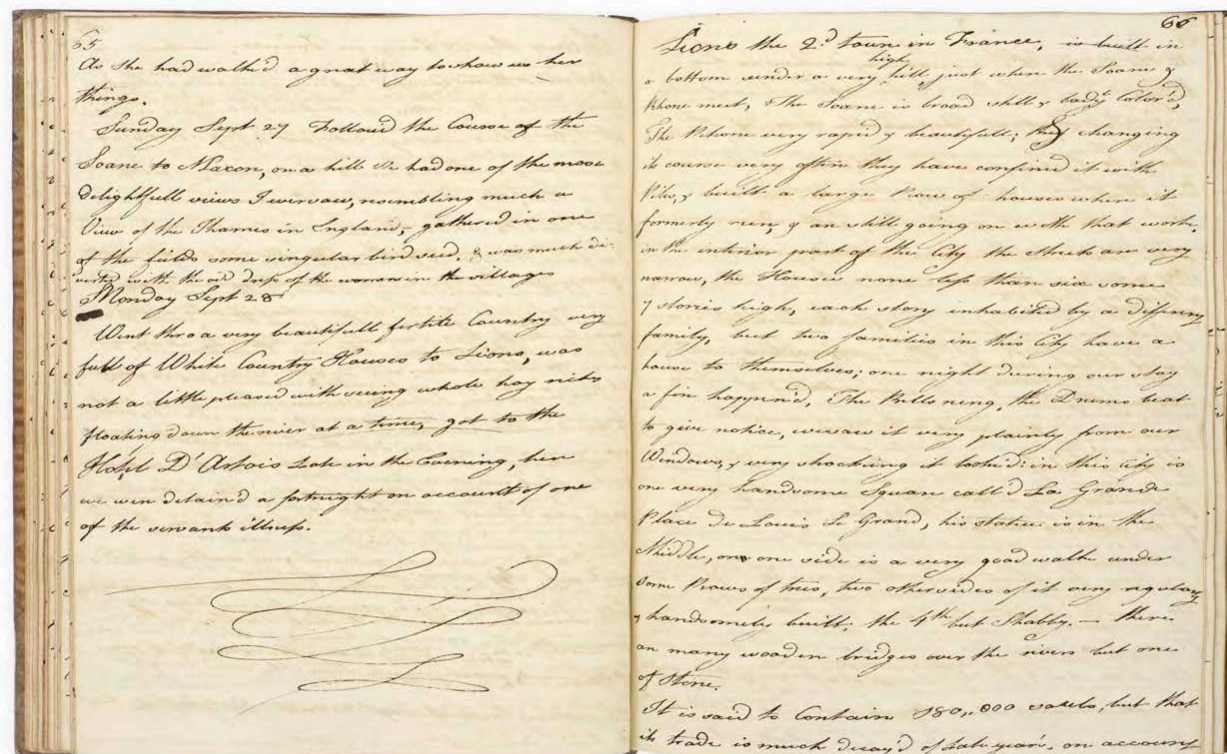 65
As she had walk'd a great way to show us her
things.
Sunday Sept 27 Follow'd the Course of the
Soane to Macon, on a hill We had one of the most
delightfull views I ever saw, resembling much a
View of the Thames in England, gathered in one
of the fields some singular bird seed. & was much di-
verted with the odd dress of the women in the villages
Monday Sept 28
Went thro a very beautifull fertile Country very
full of White Country Houses to Lions, was
not a little pleased with seeing whole hay ricks
floating down the river at a time, got to the
Hotel D'Artois Late in the Evening, here
we were detain'd a fortnight on account of one
of the servants illness.
66
Lions the 2d town in France, is built in
a bottom under a very high hill, just where the Soane &
Rhone meet, The Soane is broad still & badly Color'd,
The Rhone very rapid & beautifull; changing
its course very often they have confined it with
Piles, & built a large Row of houses where it
formerly run & are still going on with that work.
in the interior part of the City the streets are very
narrow, the Houses none less than six some
7 stories high, each story inhabited by a different
family, but two families in this City have a
house to themselves; one night during our stay
a fire happen'd, The Bells rung, the Drums beat
to give notice, we saw it very plainly from our
Windows, & very shocking it look'd: in this city is
one very handsome Square call'd La Grande
Place de Louis Le Grand, his statue is in the
Middle, on one side is a very good walk under
some Rows of trees, two other sides of it very regularly
& handsomely built; the 4th but Shabby. — there
are many wooden bridges over the rivers but one
of Stone.
It is said to Contain 180,,000 souls, but that
its trade is much decay'd of late years, on account